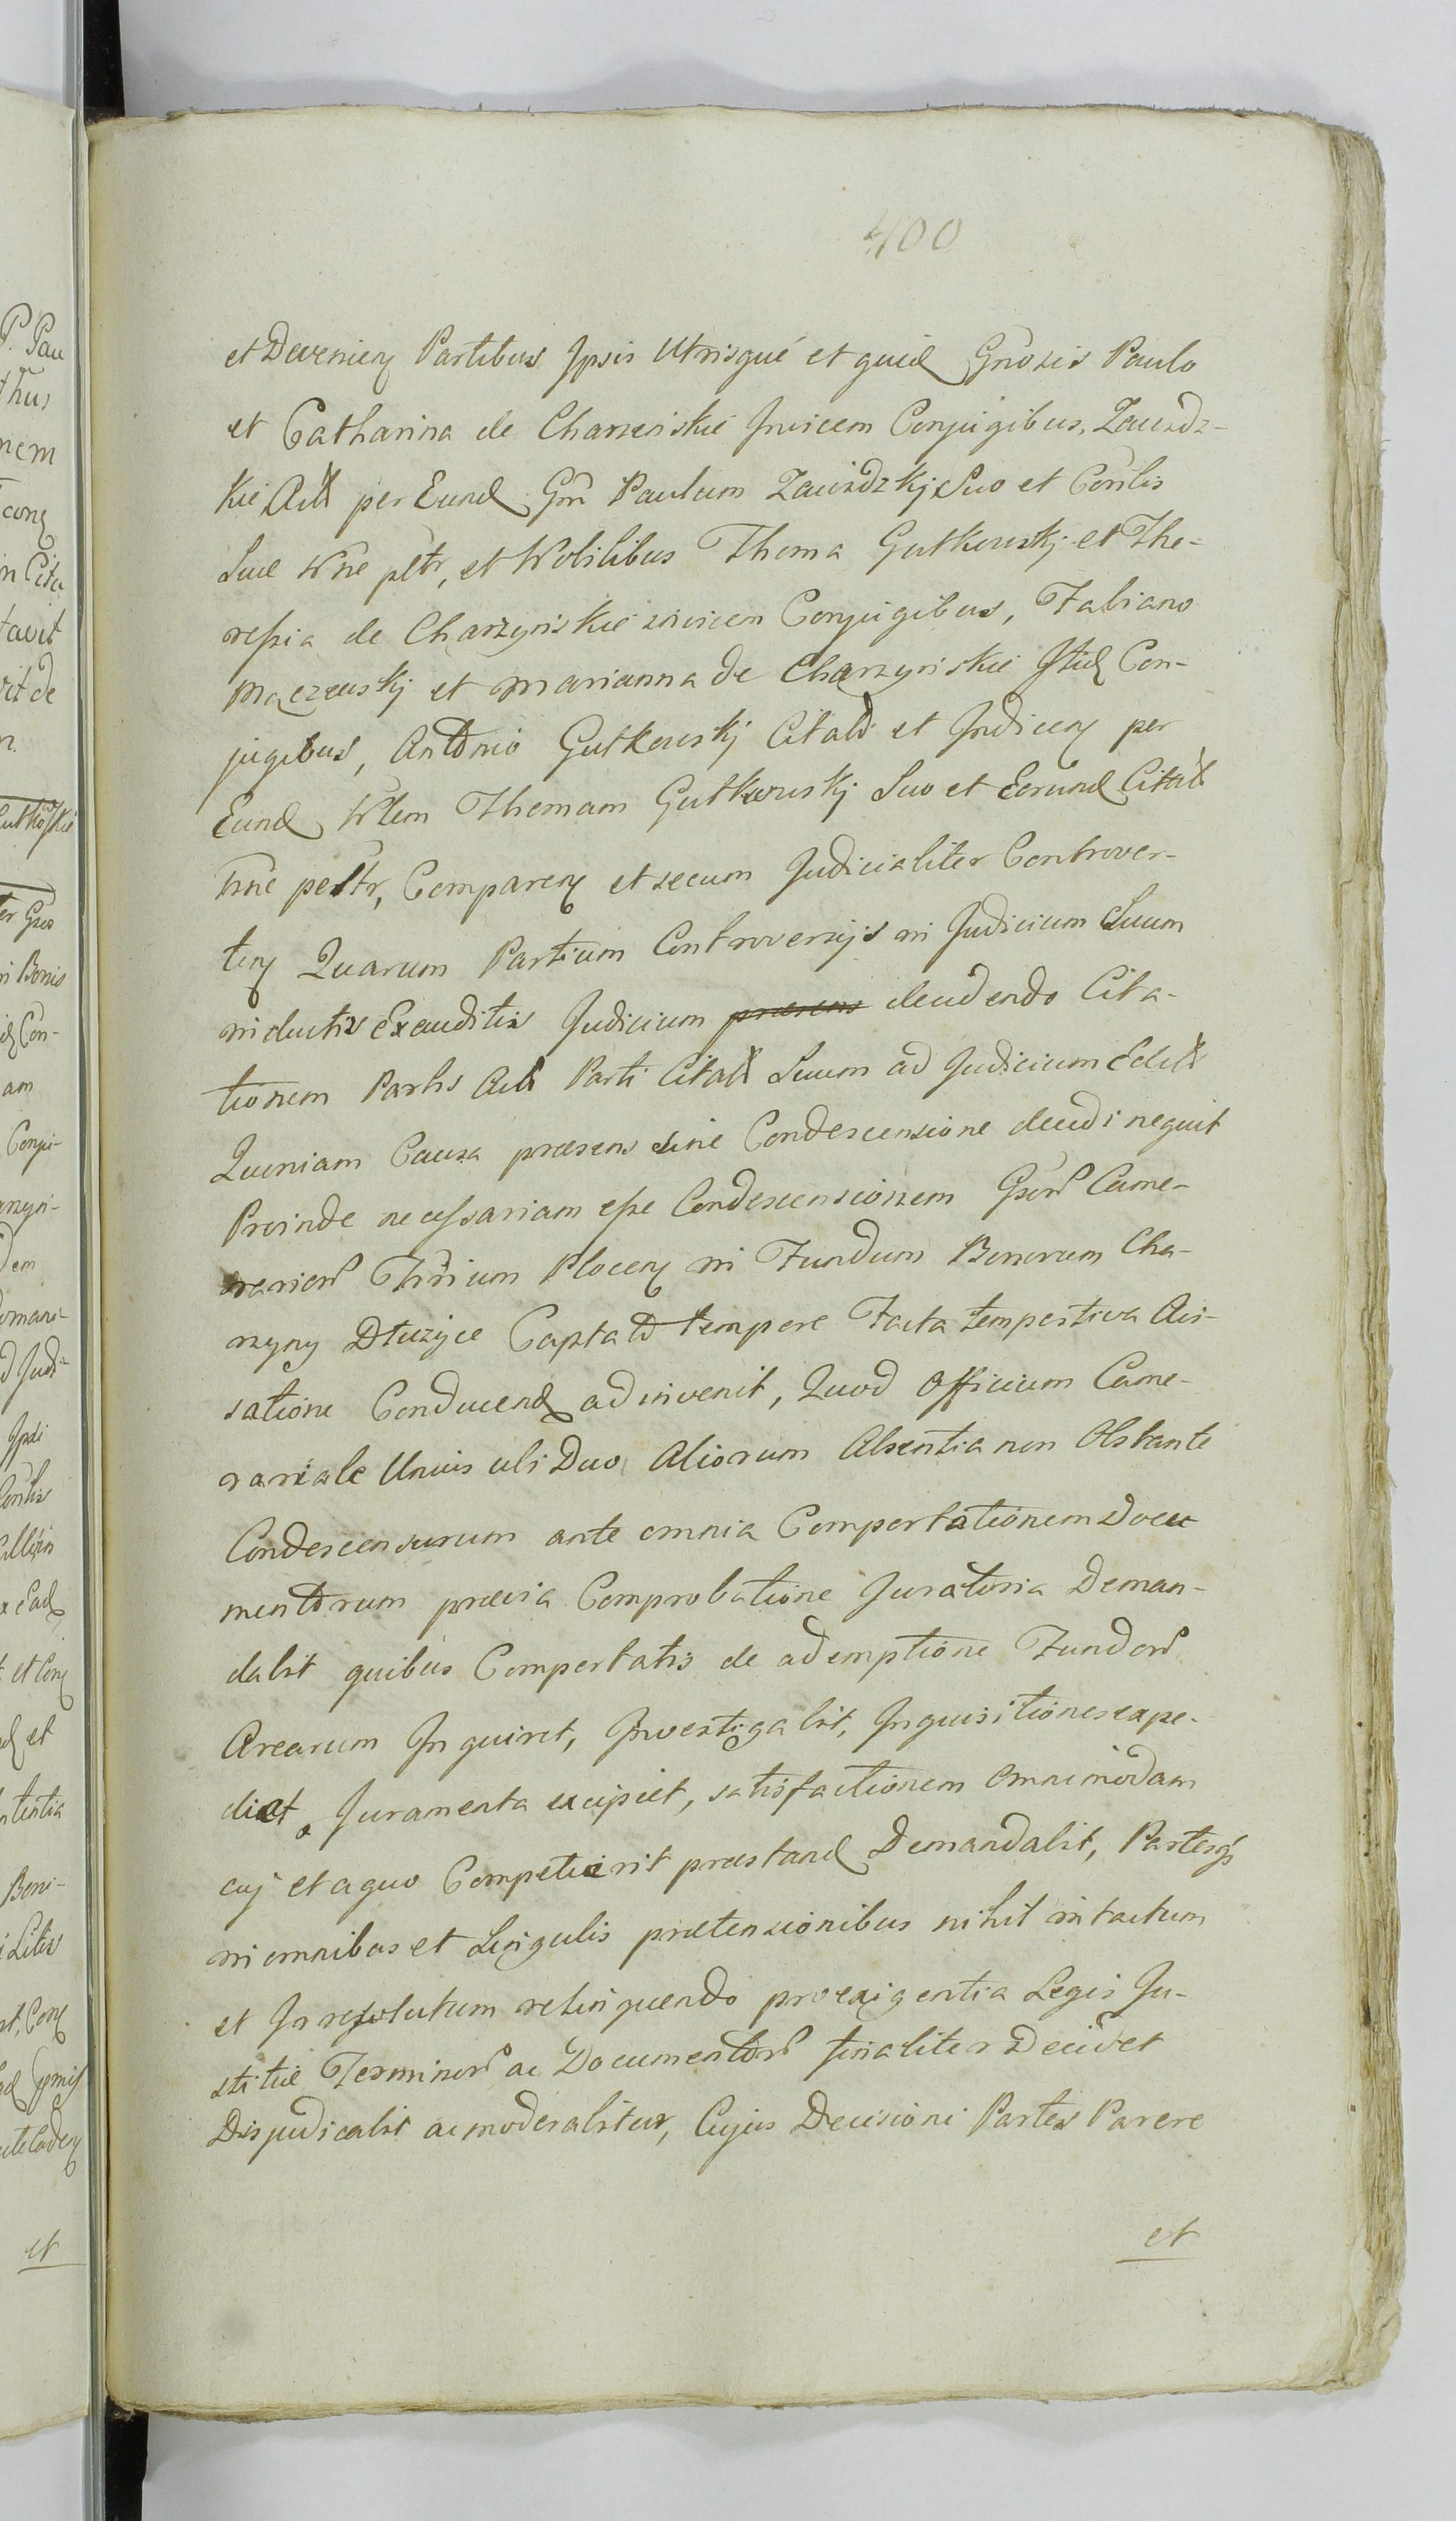 400
et Devenien Partibus Ipsis Utrisque et quid Gnosis Paulo
et Catharina de Charzenskie Invicem Conjugibus, Zawidz-
kie Act per Eund Gnm Paulum Zawidzkj Suo et Contlis
Suæ Nne pltr, et Nobilibus Thoma Gutkowskj et The-
resia de Charzynskie invicem Conjugibus, Fabiano
Mączewskj et Marianna de Charzynskie Itid Con-
jugibus, Antonio Gutkowskj Citatt et Indicen per
Eund Nlem Thomam Gutkowskj Suo et Eorund Citatt
Nne pertr, Comparen et secum Judicialiter Controver-
ten Quarum Partium Controversijs in Judicium Suum
inductis Exauditis Judicium præsens decidendo Cita-
tionem Partis Act Parti Citatt Suum ad Judicium Editt
Quoniam Causa præsens sine Condescensione decidi nequit
Proinde necessariam esse Condescensionem Gsor Came-
rarior Trrium Plocen in Fundum Bonorum Cha-
rzyny Dłuzyce Captato tempore Facta tempestiva Avi-
satione Conducend adinvenit, Quod Officium Came-
rariale Unius ubi Duo Aliorum Absentia non Obstante
Condescensurum ante omnia Comportationem Docu
mentorum prævia Comprobatione Juratoria Deman-
dabit quibus Comportatis de ademptione Fundor
Arearum Inquiret, Investigabit, Inquisitiones expe-
diet, Juramenta excipiet, satisfactionem Omnimodam
cuj et a quo Competierit præstand Demandabit, Partesq
in omnibus et Singulis prætensionibus nihil intactum
et Inresolutum relinquendo pro exigentia Legis Ju-
stitiæ Terminor ac Documentor finaliter Decidet
Disjudicabit ac moderabitur, Cujus Decisioni Partes Parere
et